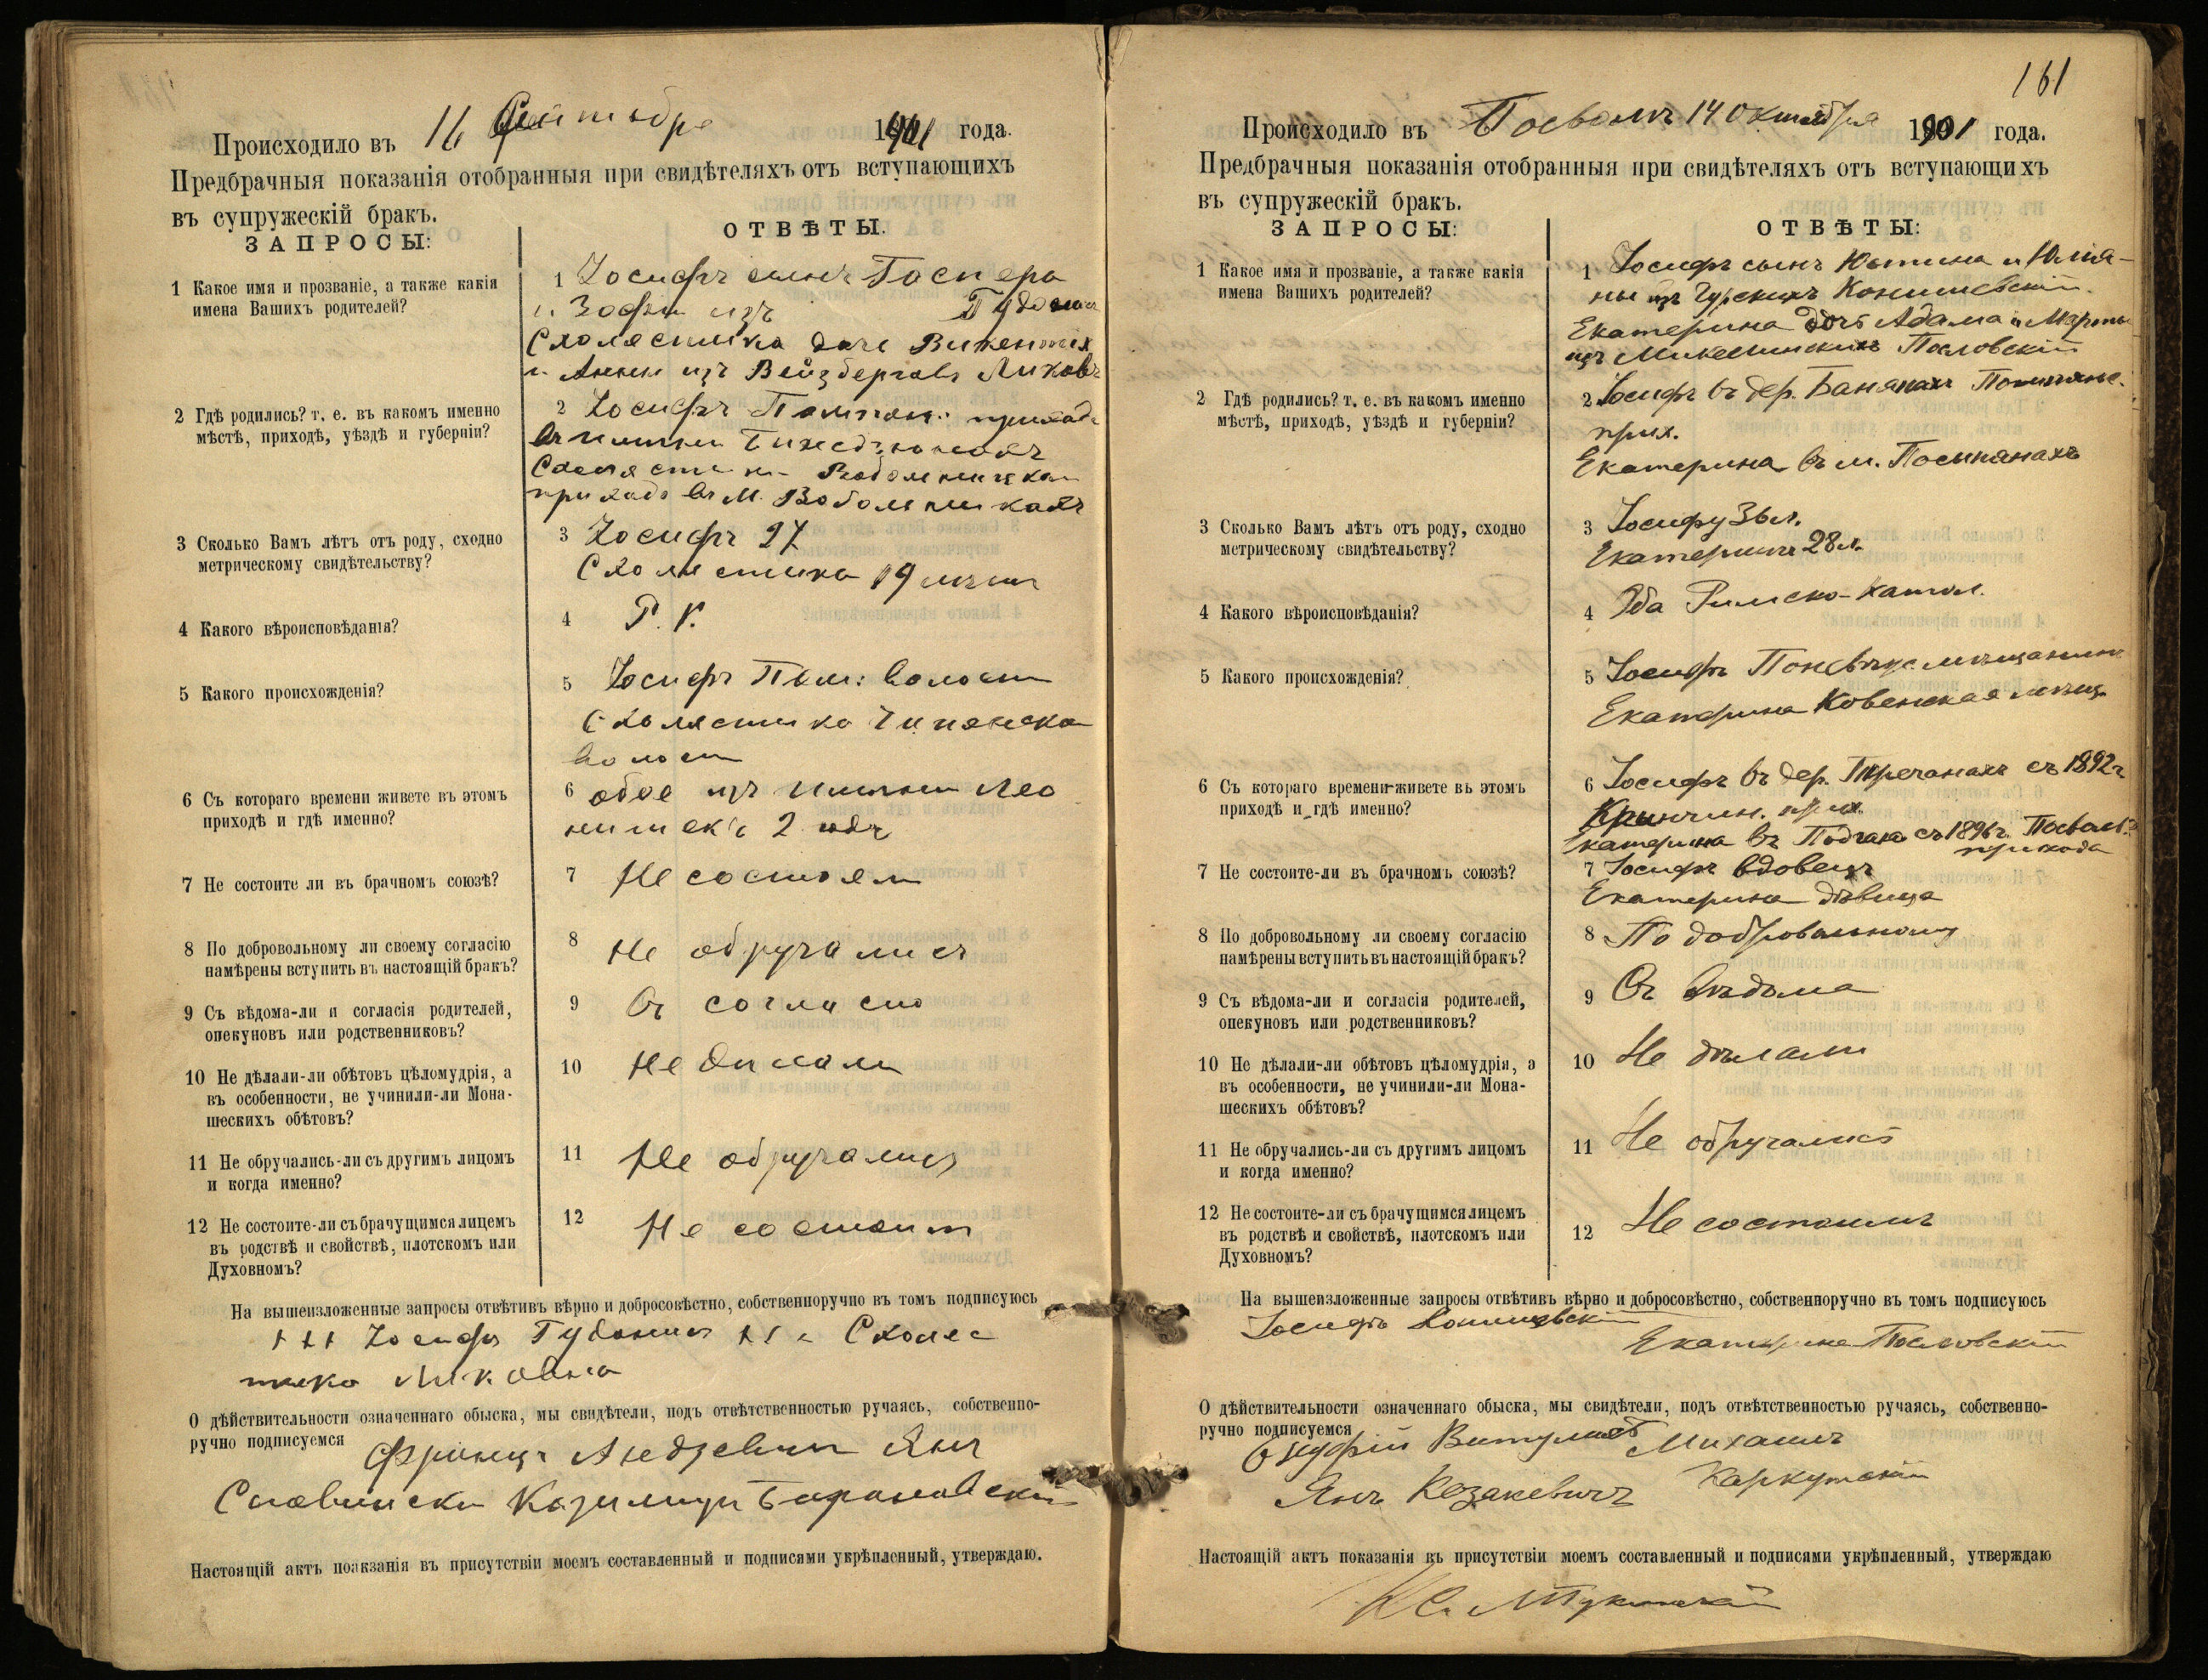 Происходило въ 16 Сентября 1901 года.
Предбрачныя показанія отобранныя при свидѣтеляхъ отъ вступающихъ
въ супружескій бракъ.
ЗАПРОСЫ:
ОТВѢТЫ.
1 Какое имя и прозваніе, а также какія
имена Вашихъ родителей?
1 Іосифъ сынъ Гаспера
и Зофіи изъ
Схолястика дочь Викентія
и Анны изъ Вейзберговъ
2 Гдѣ родились? т. е. въ какомъ именно
мѣстѣ, приходѣ, уѣздѣ и губерніи?
2 Іосифъ прихода
въ имѣніи
прихода въ М. Вобольникахъ
3 Сколько Вамъ лѣтъ отъ роду, сходно
метрическому свидѣтельству?
3 Іосифъ 27
Схолястика 19 лѣтъ
4 Какого вѣроисповѣданія?
4 Р. К.
5 Какого происхожденія?
5 Іосифъ Пом: волости
Схолястика
волости
6 Съ котораго времени живете въ этомъ
приходѣ и гдѣ именно?
6 обое изъ имѣнія Лео
2 года
7 Не состоите ли въ брачномъ союзѣ?
7 Не состоям
8 По добровольному ли своему согласію
намѣрены вступить въ настоящій бракъ?
8 Не обручались
9 Съ вѣдома-ли и согласія родителей,
опекуновъ или родственниковъ?
9 Съ согласію
10 Не дѣлали-ли обѣтовъ цѣломудрія, а
въ особенности, не учинили-ли Мона-
шескихъ обѣтовъ?
10 Не дилали
11 Не обручались-ли съ другимъ лицомъ
и когда именно?
11 Не обручались
12 Не состоите-ли съ брачущимся лицемъ
въ родствѣ и свойствѣ, плотскомъ или
Духовномъ?
12 Не состоим
На вышеизложенные запросы отвѣтивъ вѣрно и добросовѣстно, собственноручно въ томъ подписуюсь
+++ Іосифъ +++ Схоляс
тика
О дѣйствительности означеннаго обыска, мы свидѣтели, подъ отвѣтственностью ручаясь, собственно-
ручно подписуемся Францъ Андзевич Янъ
Славински Казимиръ Барановски
Настоящій актъ поакзанія въ присутствіи моемъ составленный и подписями укрѣпленный, утверждаю.
161
Происходило въ Посволѣ 14 октября 1901 года.
Предбрачныя показанія отобранныя при свидѣтеляхъ отъ вступающихъ
въ супружескій бракъ.
ЗАПРОСЫ:
ОТВѢТЫ:
1 Какое имя и прозваніе, а также какія
имена Вашихъ родителей?
1 Іосифъ сынъ Юстина и Юлія-
ны изъ Гурскихъ
Екатерина дочь Адама и Марты
изъ
2 Гдѣ родились? т. е. въ какомъ именно
мѣстѣ, приходѣ, уѣздѣ и губерніи?
2 Іосифъ въ дер.
прих.
Екатерина въ м.
3 Сколько Вамъ лѣтъ отъ роду, сходно
метрическому свидѣтельству?
3 Іосифу 36 л.
Екатеринѣ 28 л.
4 Какого вѣроисповѣданія?
4 Оба Римско-катол.
5 Какого происхожденія?
5 Іосифъ Поневѣж. мѣщанинъ
Екатерина Ковенская мѣщ.
6 Съ котораго времени-живете въ этомъ
приходѣ и гдѣ именно?
6 Іосифъ въ дер. съ 1892 г.
Крынчин. прих.
Екатерина въ съ 1896 г. Посвол.
прихода
7 Не состоите-ли въ брачномъ союзѣ?
7 Іосифъ вдовецъ
Екатерина дѣвица
8 По добровольному ли своему согласію
намѣрены вступить въ настоящій бракъ?
8 По добровольному
9 Съ вѣдома-ли и согласія родителей,
опекуновъ или родственниковъ?
9 Съ вѣдома
10 Не дѣлали-ли обѣтовъ цѣломудрія, а
въ особенности, не учинили-ли Мона-
шескихъ обѣтовъ?
10 Не дѣлали
11 Не обручались-ли съ другимъ лицомъ
и когда именно?
11 Не обручались
12 Не состоите-ли съ брачущимся лицемъ
въ родствѣ и свойствѣ, плотскомъ или
Духовномъ?
12 Не состоимъ
На вышеизложенные запросы отвѣтивъ вѣрно и добросовѣстно, собственноручно въ томъ подписуюсь
Іосифъ
Екатерина
О дѣйствительности означеннаго обыска, мы свидѣтели, подъ отвѣтственностью ручаясь, собственно-
ручно подписуемся
Онуфрій Михаилъ
Янъ Козакевичъ
Настоящій актъ показанія въ присутствіи моемъ составленный и подписями укрѣпленный, утверждаю